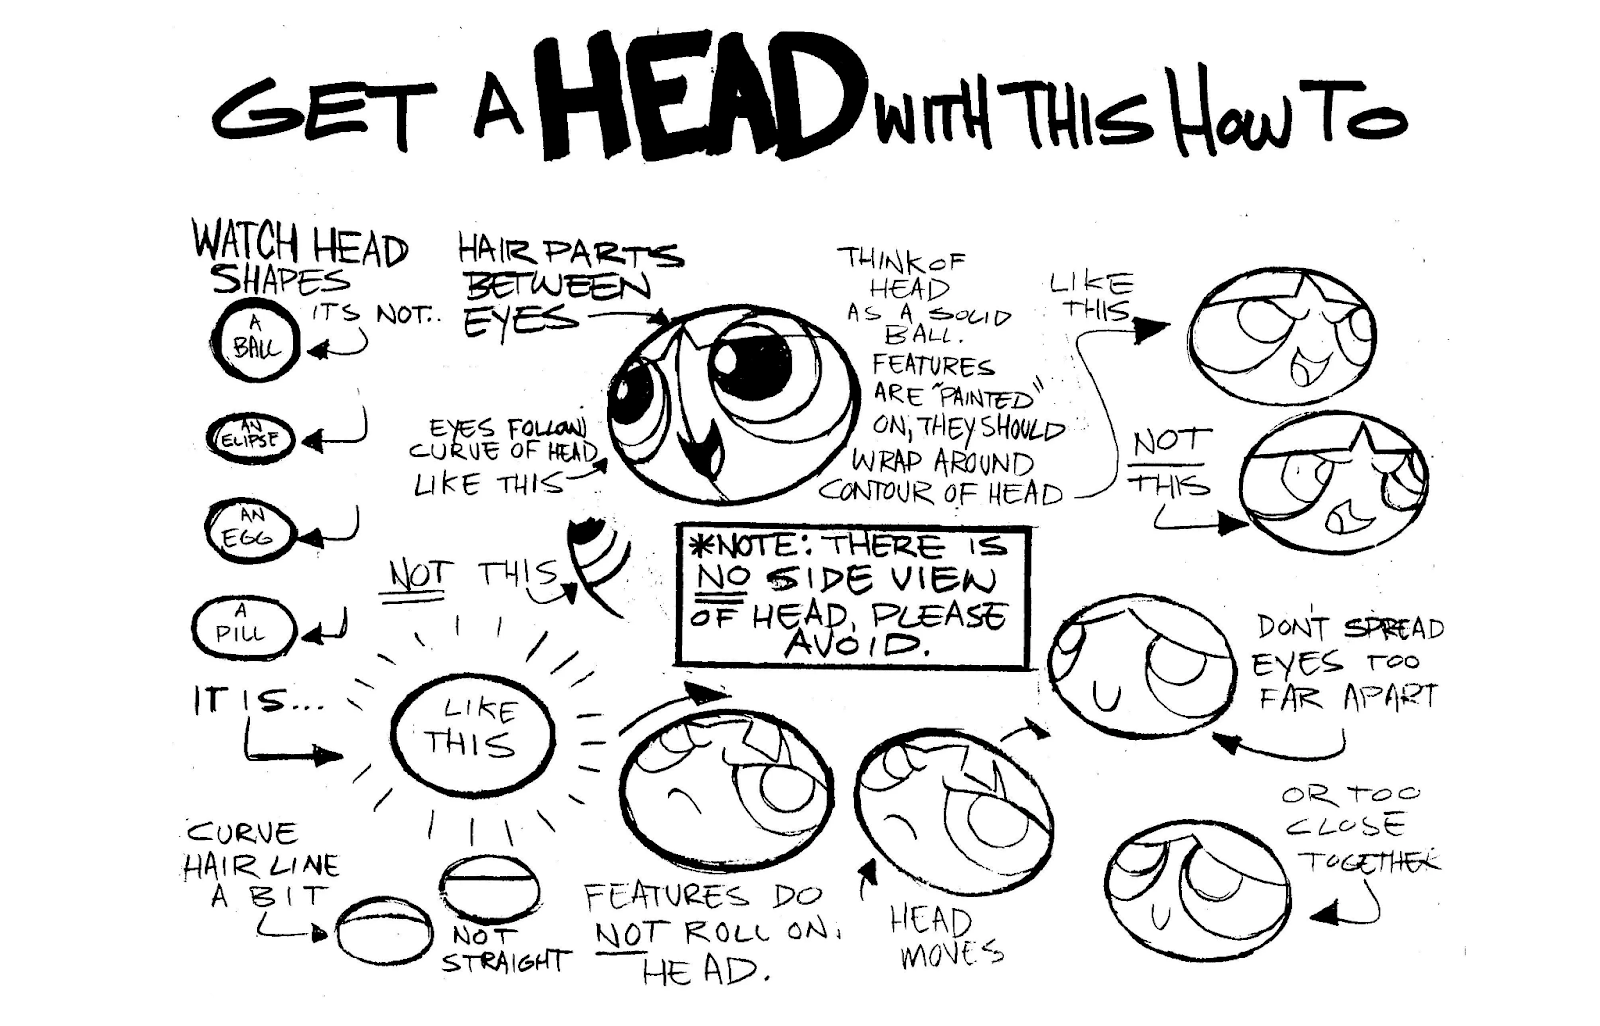 GET A HEAD WITH THIS HOW TO
WATCH HEAD
SHAPES
A
BALL
ITS NOT..
AN
ELIPSE
AN
EGG
A
PILL
IT IS...
LIKE
THIS
CURVE
HAIR LINE
A BIT
NOT
STRAIGHT
HAIR PARTS
BETWEEN
EYES
EYES FOLLOW
CURVE OF HEAD
LIKE THIS
NOT THIS
THINK OF
HEAD
AS A SOLID
BALL.
FEATURES
ARE "PAINTED"
ON, THEY SHOULD
WRAP AROUND
CONTOUR OF HEAD
LIKE
THIS
NOT
THIS
*NOTE: THERE IS
NO SIDE VIEW
OF HEAD, PLEASE
AVOID.
FEATURES DO
NOT ROLL ON
HEAD.
HEAD
MOVES
DON'T SPREAD
EYES TOO
FAR APART
OR TOO
CLOSE
TOGETHER